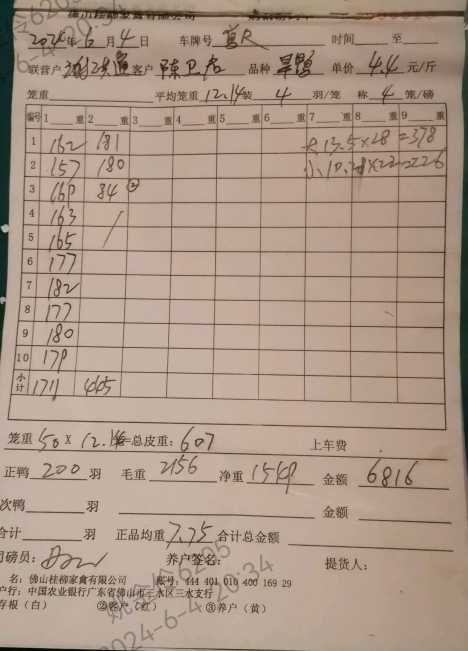 佛山桂柳家禽有限公司
2024年6月4日 车牌号 时间 至
联营户 客户 陈卫君 品种 旱鸭 单价 4.4 元/斤
笼重 平均笼重 12.14 装 4 羽/笼 称 4 笼/磅
编号 1 重 2 重 3 重 4 重 5 重 6 重 7 重 8 重 9 重
1 162 181 大13.5×28=378
2 157 180
3 169 84 ②
4 163 /
5 165
6 177
7 182
8 177
9 180
10 179
小计 1711 445
笼重 50×12.14=总皮重: 607 上车费
正鸭 200 羽 毛重 2156 净重 1549 金额 6816
次鸭 羽 金额
合计 羽 正品均重 7.75 合计总金额
司磅员: 养户签名: 提货人:
名: 佛山桂柳家禽有限公司 账号: 444 401 010 400 169 29
户行: 中国农业银行广东省佛山市三水区三水支行
存根(白) ②客户(红) ③养户(黄)
6205
2024-6-4 20:34